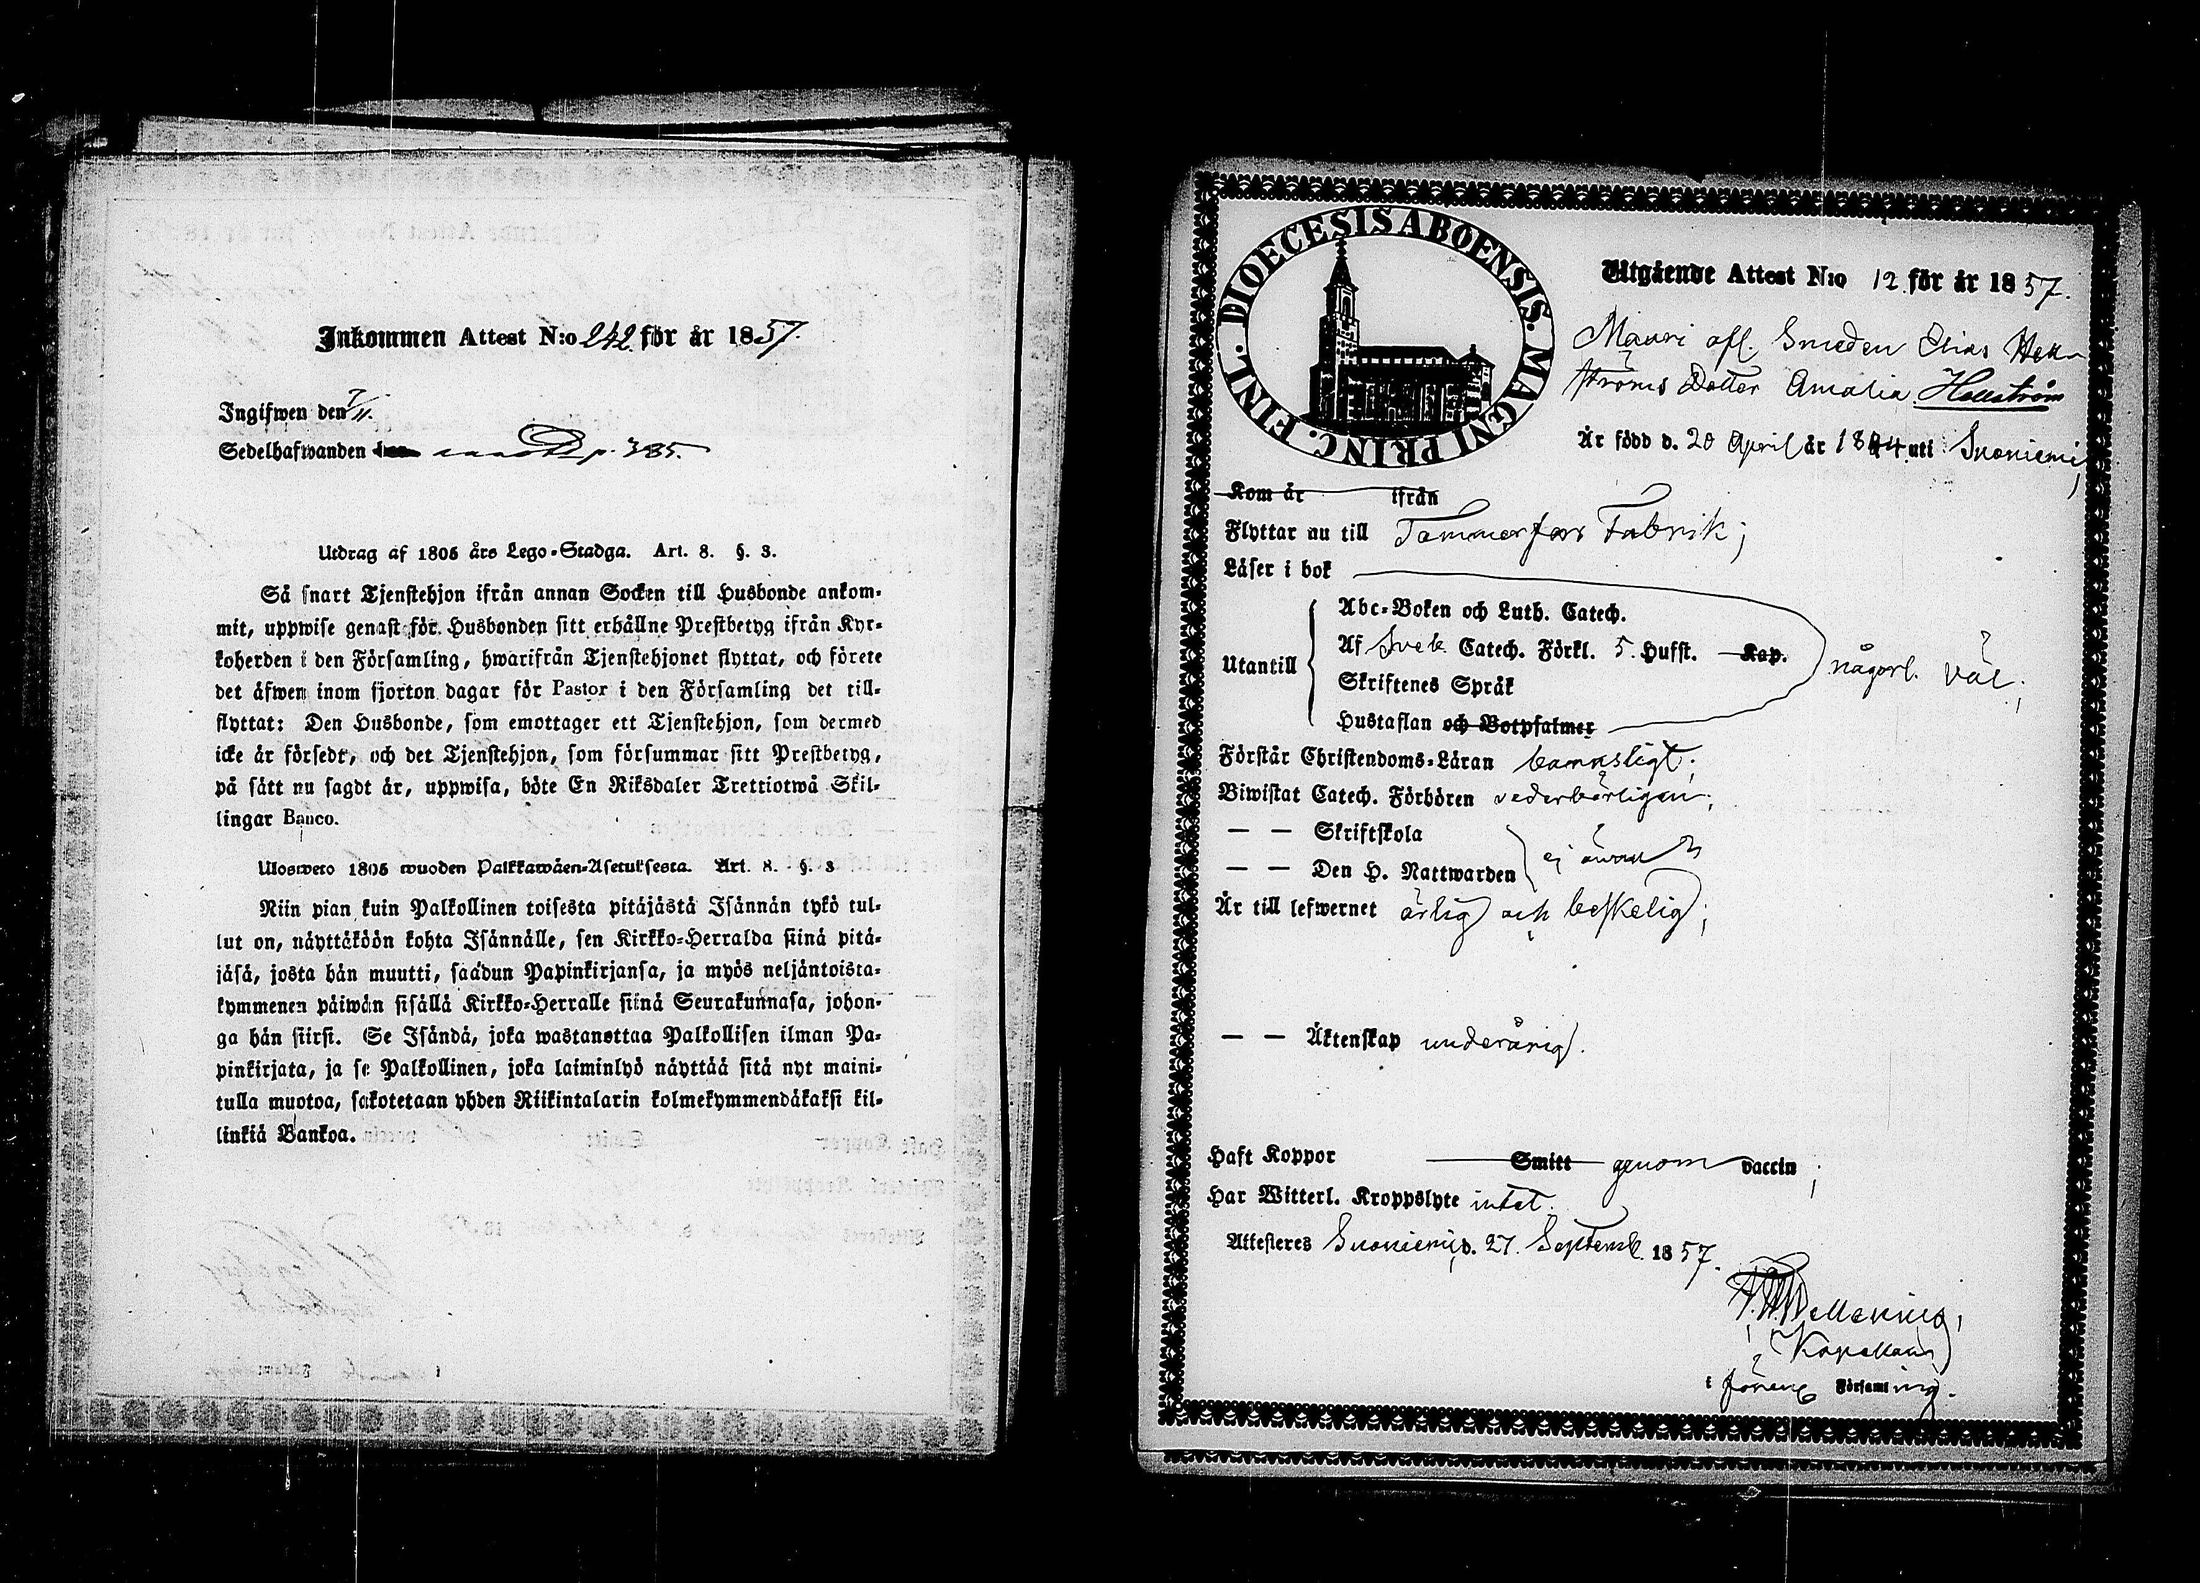 Inkommen Attest N:o 242 för år 1857.
Ingifwen den 7/11.
Sedelhafwanden p. 385.
Utdrag af 1805 års Lego-Stadga. Art. 8. §. 3.
Så snart Tjenstehjon ifrån annan Socken till Husbonde ankom-
mit, uppwise genast för Husbonden sitt erhållne Prestbetyg ifrån Kyr-
koherden i den Församling, hwarifrån Tjenstehjonet flyttat, och förete
det äfwen inom fjorton dagar för Pastor i den Församling det till-
flyttat: Den Husbonde, som emottager ett Tjenstehjon, som dermed
icke är försedt, och det Tjenstehjon, som försummar sitt Prestbetyg,
på sätt nu sagdt är, uppwisa, böte En Riksdaler Trettiotwå Skil-
lingar Banco.
Ulosweto 1805 wuoden Palkkawäen-Asetuksesta. Art. 8. §. 3
Niin pian kuin Palkollinen toisesta pitäjästä Isännän tykö tul-
lut on, näyttäköön kohta Isännälle, sen Kirkko-Herralda siinä pitä-
jäsä, josta hän muutti, saadun Papinkirjansa, ja myös neljäntoista-
kymmenen päiwän sisällä Kirkko-Herralle siinä Seurakunnasa, johon-
ga hän siirsi. Se Isändä, joka wastanottaa Palkollisen ilman Pa-
pinkirjata, ja se Palkollinen, joka laiminlyö näyttää sitä nyt maini-
tulla muotoa, sakotetaan yhden Riikintalarin kolmekymmendäkaksi kil-
linkiä Bankoa.
DIOECESIS ABOENSIS. MAGNI PRINC. FINL.
Utgående Attest N:o 12 för år 1857.
Mauri afl. Smeden Elias Hell-
ströms Dotter Amalia Hellström
Är född d. 20 April år 1844 uti Suoniemi;
Kom år ifrån
Flyttar nu till Tammerfors Fabrik;
Läser i bok
Abc-Boken och Luth. Catech.
Utantill Af Sveb. Catech. Förkl. 5. Hufst. Kap. någorl. väl;
Skriftenes Språk
Hustaflan och Botpsalmer
Förstår Christendoms-Läran barnsligt;
Biwistat Catech. Förhören vederbörligen;
— — Skriftskola
— — Den H. Nattwarden ej ännu
Är till lefwernet ärlig och beskelig;
— — Äktenskap underårig.
Haft Koppor Smitt genom vaccin;
Har Witterl. Kroppslyte intet.
Attesteras Suoniemi, d. 27. Septemb. 1857.
Kapellan
i förene Församling.